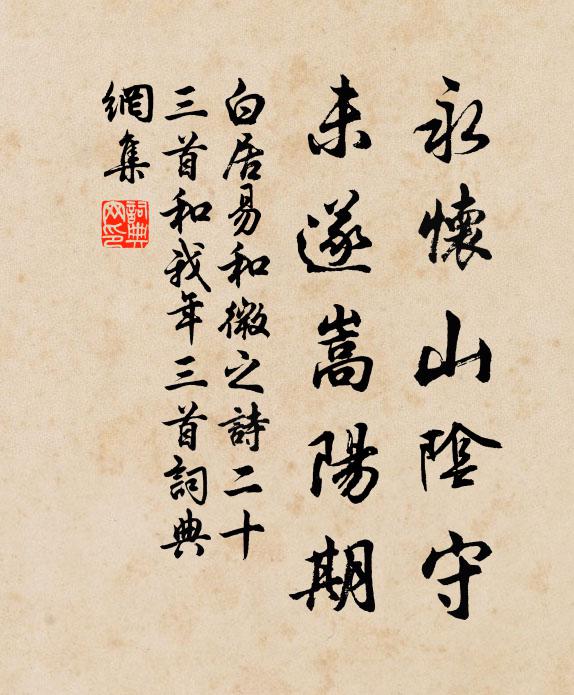 永懷山陰守
未遂嵩陽期
白居易和微之詩二十
三首和我年三首詞典
網集
詞典網印